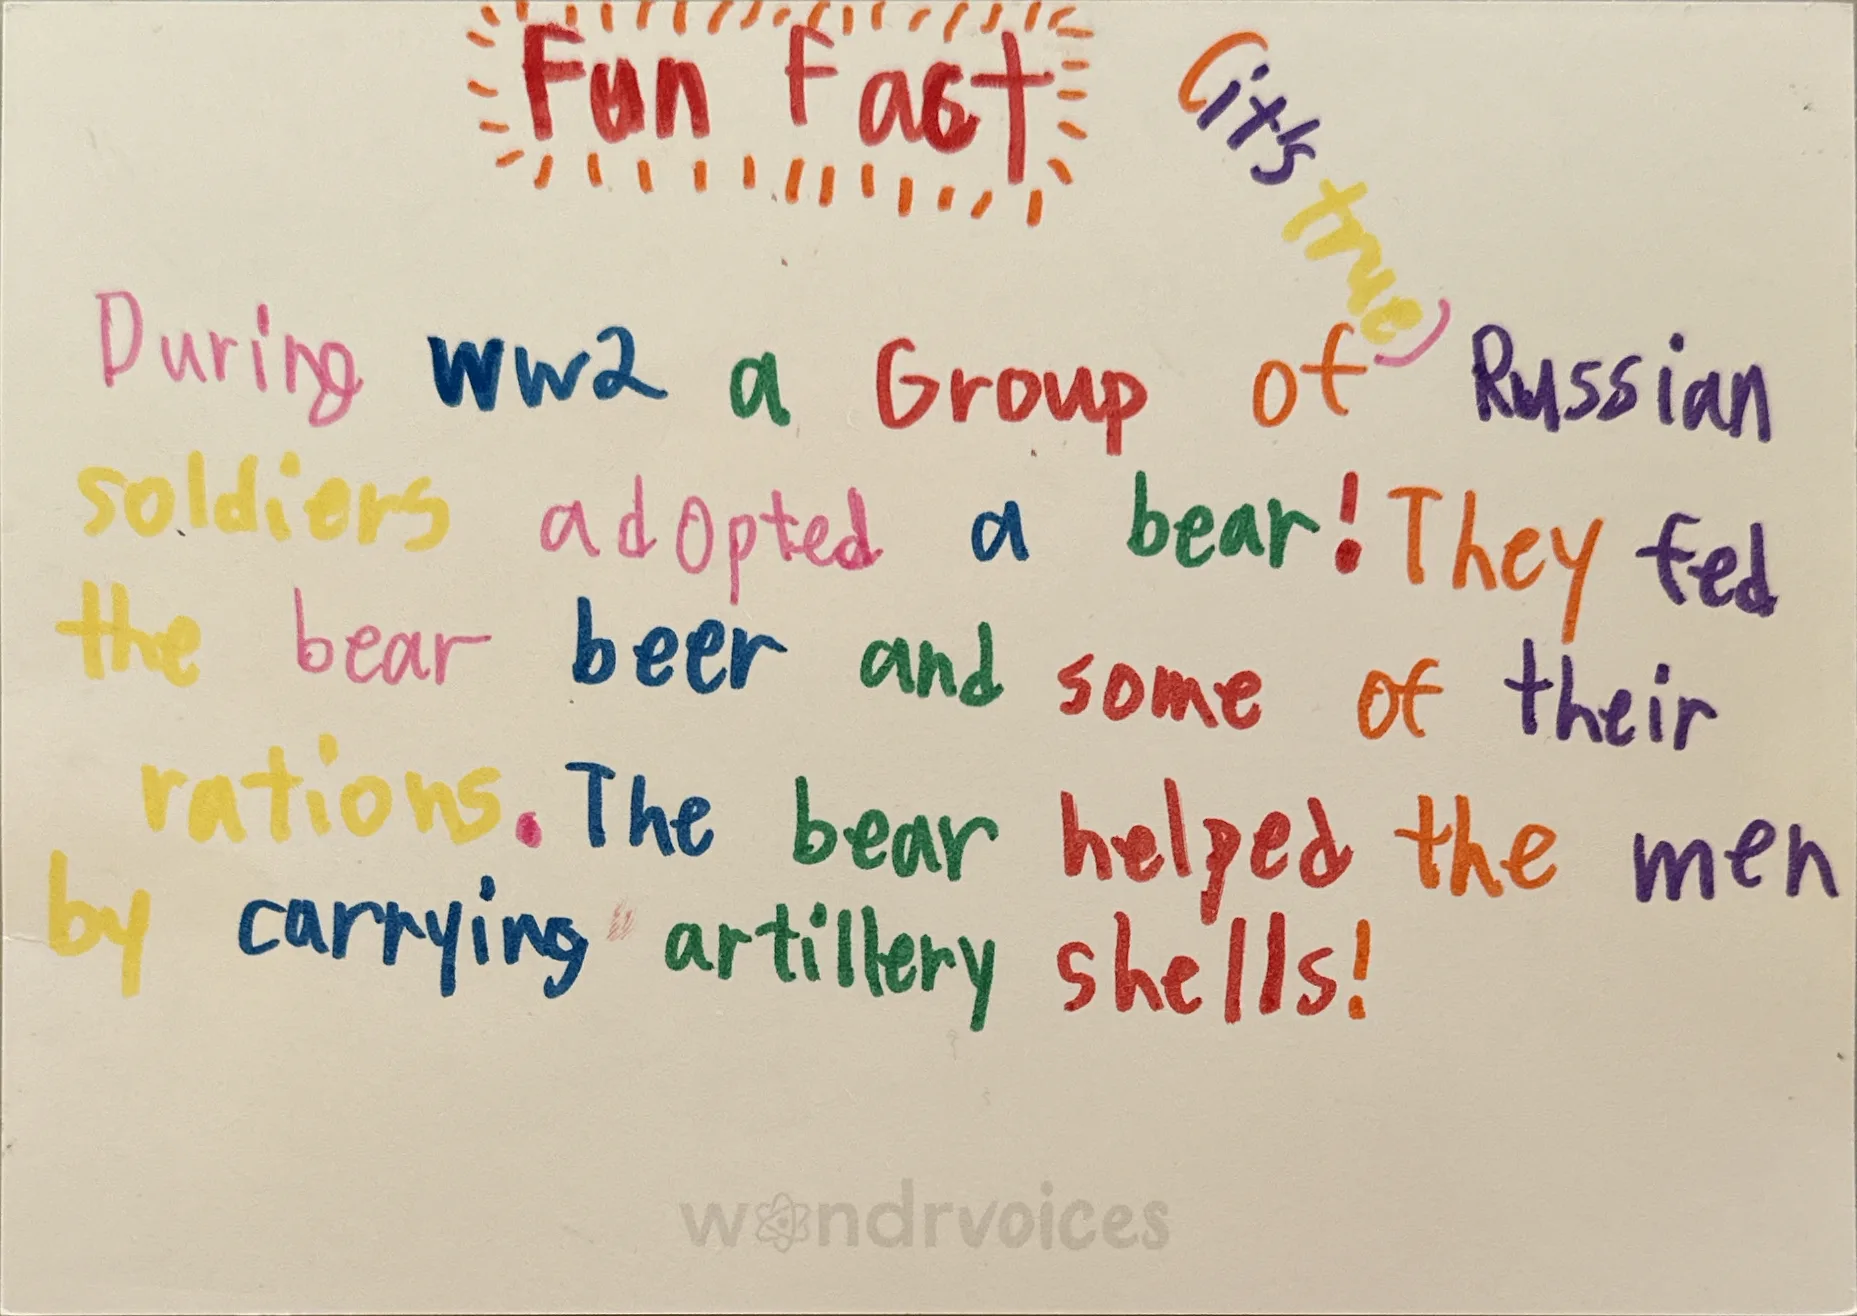 Fun Fact
(it's true)
During WW2 a Group of Russian
soldiers adopted a bear! They fed
the bear beer and some of their
rations. The bear helped the men
by carrying artillery shells!
wondrvoices